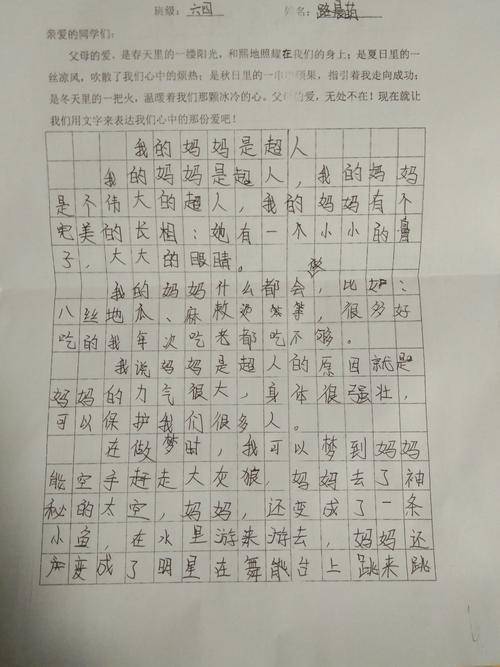 班级：六四 姓名：路晨萌
亲爱的同学们：
父母的爱，是春天里的一缕阳光，和熙地照耀在我们的身上；是夏日里的一
丝凉风，吹散了我们心中的烦热；是秋日里的一巾硕果，指引着我走向成功；
是冬天里的一把火，温暖着我们那颗冰冷的心。父母的爱，无处不在！现在就让
我们用文字来表达我们心中的那份爱吧！
我的妈妈是超人
我的妈妈是超人，我的妈妈
是不伟大的超人，我的妈妈有不
完美的长相：她有一个小小的鼻
子，大大的眼睛。
我的妈妈什么都会做，比如：
八丝地瓜、麻救 等，很多好
吃的我每次吃老都吃不够。
我说妈妈是超人的原因就是
妈妈的力气很大，身体很强壮，
可以保护我们很多人。
在做梦时，我可以梦到妈妈
能空手赶走大灰狼，妈妈去了神
秘的太空，妈妈，还变成了一条
小鱼，在水里游来游去，妈妈还
变成了明星在舞能台上跳来跳